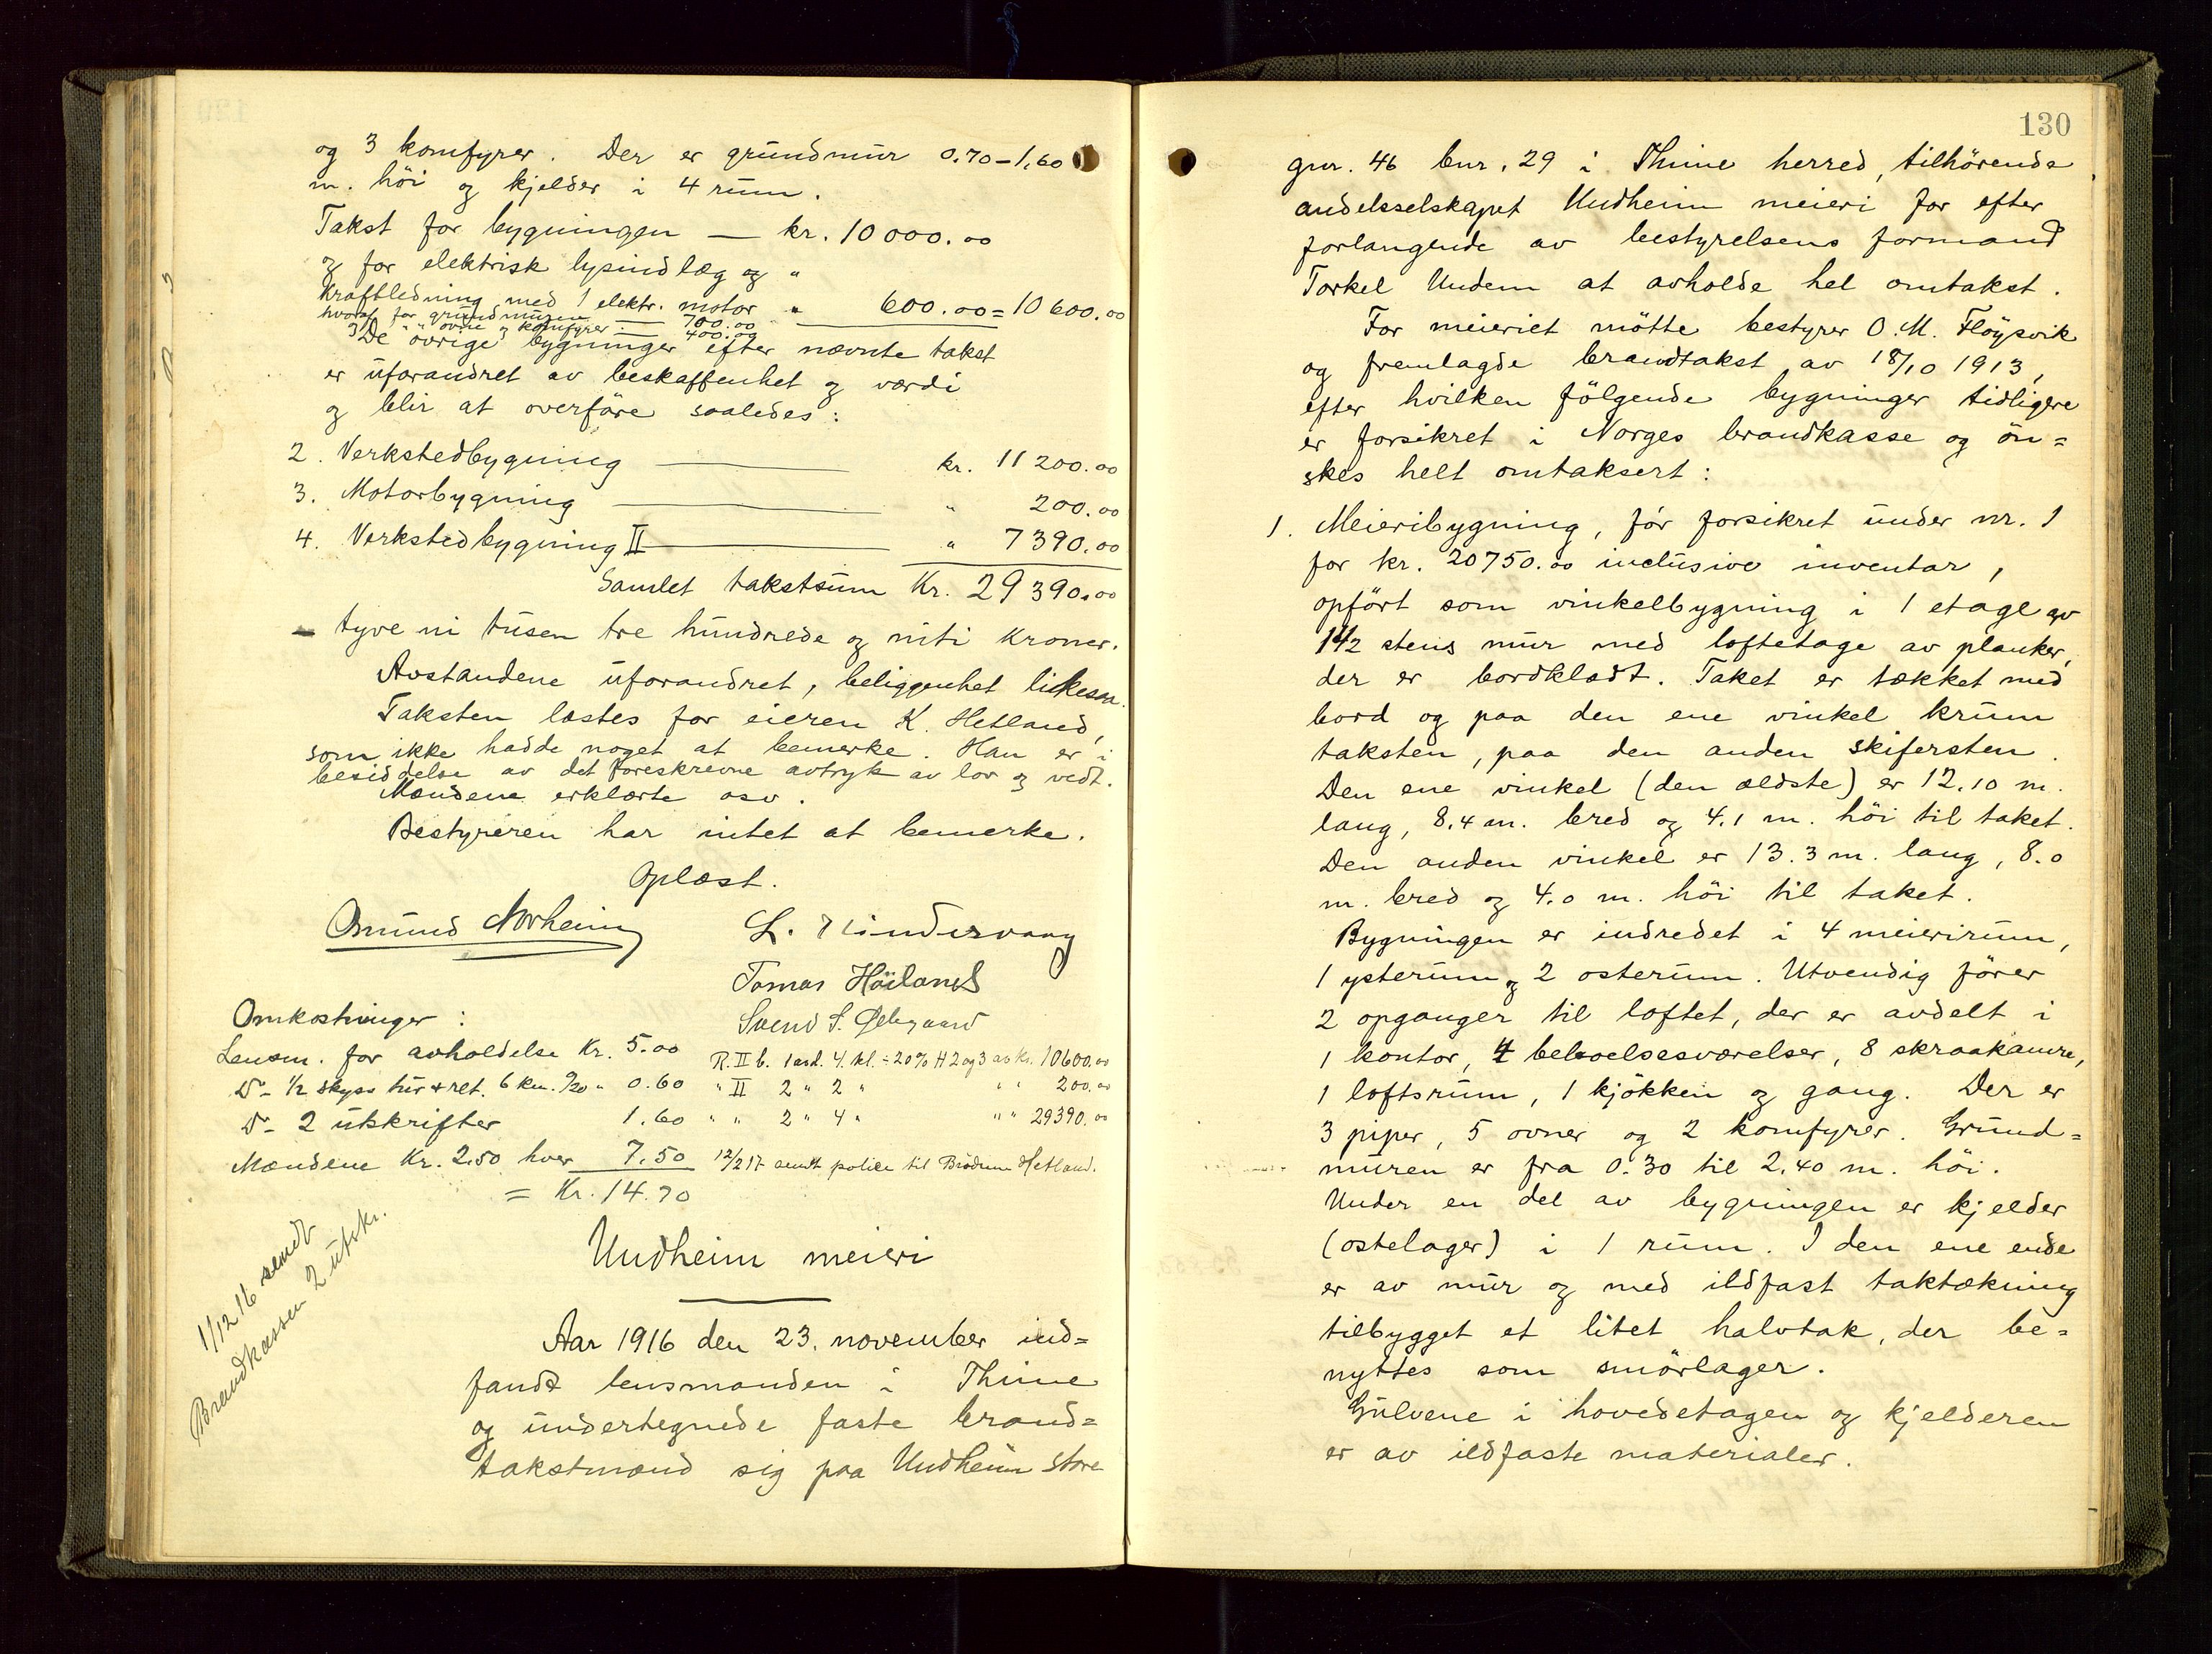 og 3 komfyrer. Der er grundmur 0.70–1.60
m. höi og kjelder i 4 rum.
Takst for bygningen — kr. 10 000.00
og for elektrisk lysindlæg og "
kraftledning med 1 elektr. motor " 600.00 = 10 600.00
hvorav for grundmuren — 700.00
" " ovne og komfyrer — 400.00
De övrige bygninger efter nævnte takst
er uforandret av beskaffenhet og værdi
og blir at overföre saaledes:
2. Verkstedbygning — kr. 11 200.00
3. Motorbygning — " 200.00
4. Verkstedbygning II — " 7 390.00
Samlet takstsum Kr. 29 390.00
– tyve ni tusen tre hundrede og nitti kroner.
Avstandene uforandret, beliggenhet likesaa.
Taksten læstes for eieren K. Hetland,
som ikke hadde noget at bemerke. Han er i
besiddelse av det foreskrevne avtryk av lov og vedt.
Mændene erklærte osv.
Bestyreren har intet at bemerke.
Oplæst.
Osmund Norheim L. Mindervaag
Tomas Höiland
Svend S. Ødegaard
Omkostninger:
Lensm. for avholdelse Kr. 5.00
D– 1/2 skyss hir & ret. 6 km. 0/20 " 0.60
D– 2 utskrifter 1.60
Mændene Kr. 2.50 hver 7.50
= Kr. 14.70
R. II b. 1 avd. 4. kl. ÷ 20% # 2 og 3 av kr. 10600.00
" II 2 " 2 " " " 200.00
" " 2 " 4 " " " 29390.00
12/2 17 sendt police til Brödrene Hetland.
1/12 16 sendt
Brandkassen 2 utskr.
Undheim meieri
Aar 1916 den 23. november ind=
fandt lensmanden i Thime
og undertegnede faste brand=
takstmænd sig paa Undheim store
130
gnr. 46 bnr. 29 i Thime herred, tilhörende
andelsselskapet Undheim meieri for efter
forlangende av bestyrelsens formand
Torkel Undem at avholde hel omtakst.
For meieriet mötte bestyrer O. M. Flöysvik
og fremlagde brandtakst av 18/10 1913,
efter hvilken fölgende bygninger tidligere
er forsikret i Norges brandkasse og ön=
skes helt omtaksert:
1. Meieribygning, för forsikret under nr. 1
for kr. 20750.00 inclusive inventar,
opfört som vinkelbygning i 1 etage av
1 1/2 stens mur med loftetage av planker,
der er bordklædt. Taket er tækket med
bord og paa den ene vinkel krum
taksten, paa den anden skifersten.
Den ene vinkel (den ældste) er 12.10 m.
lang, 8.4 m. bred og 4.1 m. höi til taket.
Den anden vinkel er 13.3 m. lang, 8.0
m. bred og 4.0 m. höi til taket.
Bygningen er indredet i 4 meierirum,
1 ysterum og 2 osterum. Utvendig förer
2 opganger til loftet, der er avdelt i
1 kontor, 4 beboelsesværelser, 8 skraakamre,
1 loftsrum, 1 kjökken og gang. Der er
3 piper, 5 ovner og 2 komfyrer. Grund=
muren er fra 0.30 til 2.40 m. höi.
Under en del av bygningen er kjelder
(ostelager) i 1 rum. I den ene ende
er av mur og med ildfast taktækning
tilbygget et litet halvtak, der be=
nyttes som smörlager.
Gulvene i hovedetagen og kjelderen
er av ildfaste materialer.